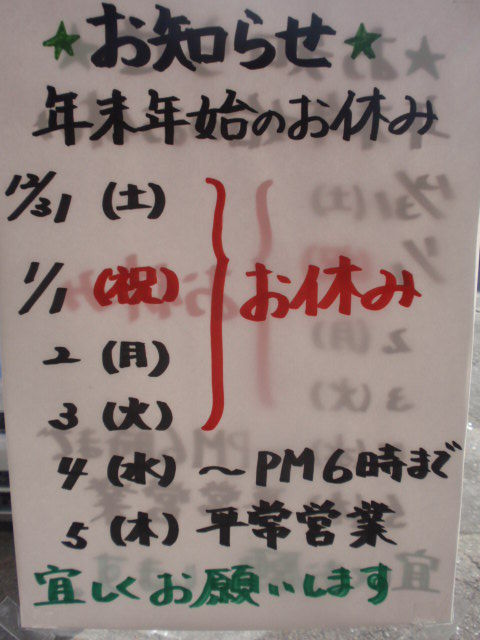 ★お知らせ★
年末年始のお休み
12/31 (土)
1/1 (祝) お休み
2 (月)
3 (火)
4 (水) ～PM6時まで
5 (木) 平常営業
宜しくお願いします